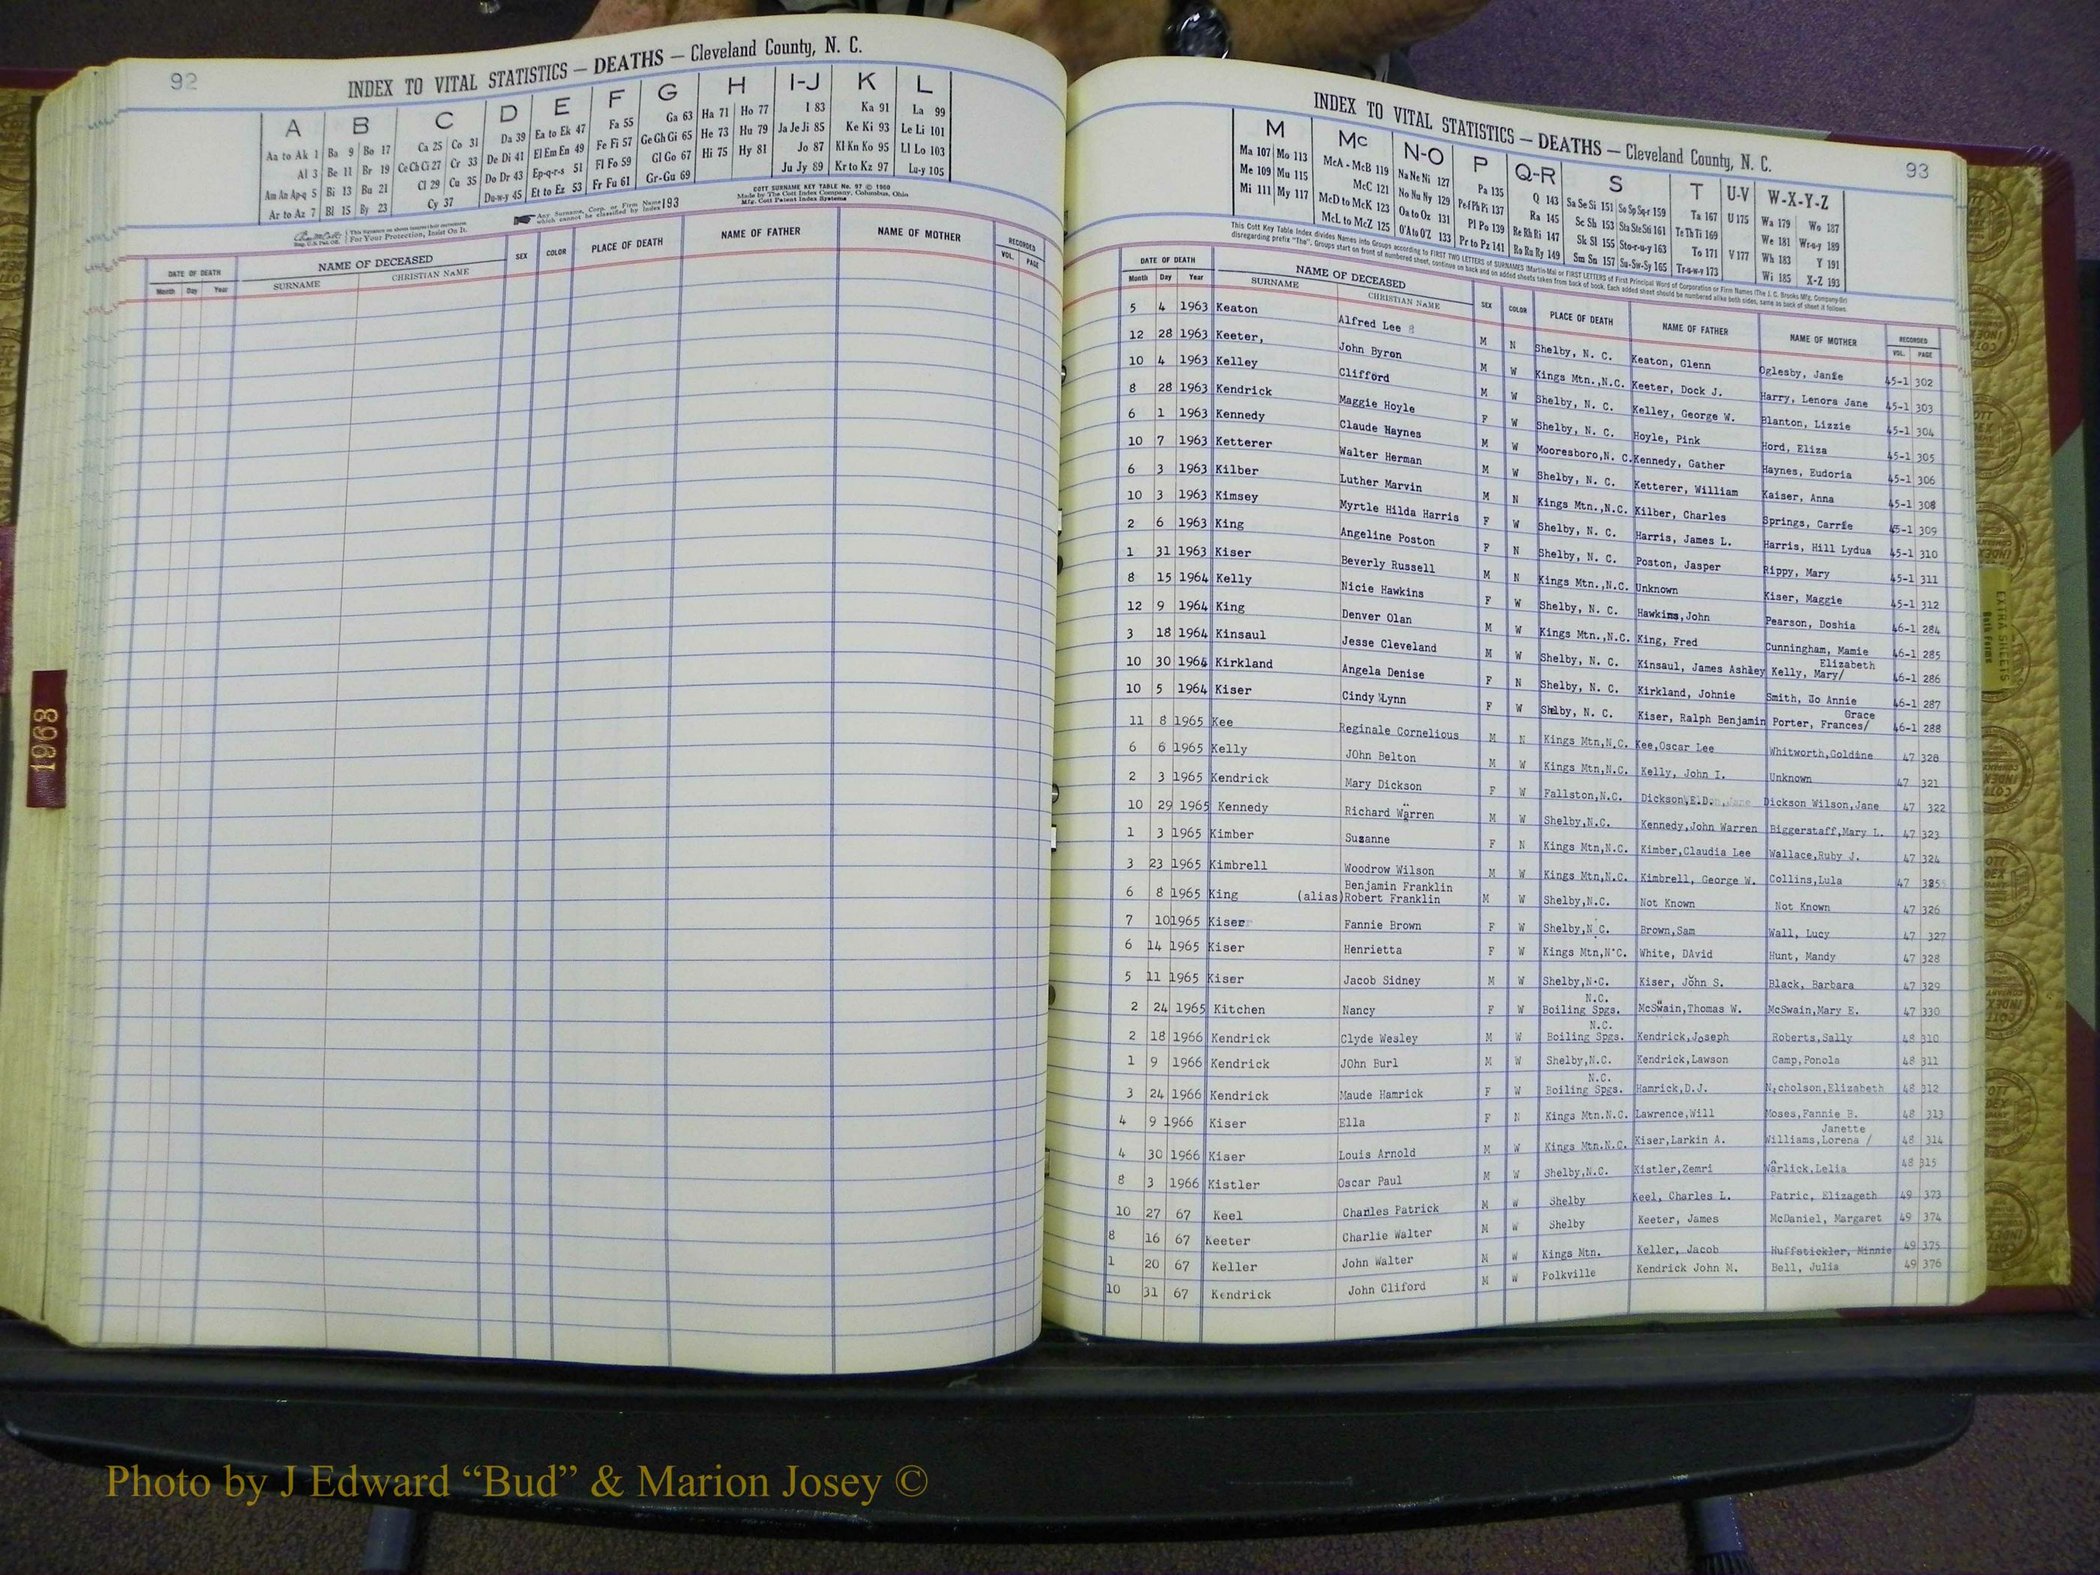 92
INDEX TO VITAL STATISTICS — DEATHS — Cleveland County, N. C.
A B C D E F G H I-J K L
Aa to Ak 1 Ba 9 Bo 17 Ca 25 Co 31 Da 39 Ea to Ek 47 Fa 55 Ga 63 Ha 71 Ho 77 I 83 Ka 91 La 99
Al 3 Be 11 Br 19 Ce Ch Ci 27 Cr 33 De Di 41 El Em En 49 Fe Fi 57 Ge Gh Gi 65 He 73 Hu 79 Ja Je Ji 85 Ke Ki 93 Le Li 101
Am An Ap-q 5 Bi 13 Bu 21 Cl 29 Cu 35 Do Dr 43 Ep-q-r-s 51 Fl Fo 59 Gl Go 67 Hi 75 Hy 81 Jo 87 Kl Kn Ko 95 Ll Lo 103
Ar to Az 7 Bl 15 By 23 Cy 37 Du-w-y 45 Et to Ez 53 Fr Fu 61 Gr-Gu 69 Ju Jy 89 Kr to Kz 97 Lu-y 105
COTT SURNAME KEY TABLE No. 97 © 1960
Made by The Cott Index Company, Columbus, Ohio
Mfg. Cott Patent Index Systems
Any Surname, Corp. or Firm Name which cannot be classified by Index 193
For Your Protection, Insist On It.
DATE OF DEATH NAME OF DECEASED SEX COLOR PLACE OF DEATH NAME OF FATHER NAME OF MOTHER RECORDED
Month Day Year SURNAME CHRISTIAN NAME VOL. PAGE
1963
93
INDEX TO VITAL STATISTICS — DEATHS — Cleveland County, N. C.
M Mc N-O P Q-R S T U-V W-X-Y-Z
Ma 107 Mo 113 McA - McB 119 Na Ne Ni 127 Pa 135 Q 143 Sa Se Si 151 So Sp Sq-r 159 Ta 167 U 175 Wa 179 Wo 187
Me 109 Mu 115 McC 121 No Nu Ny 129 Pe Pf Ph Pi 137 Ra 145 Sc Sh 153 Sta Ste Sti 161 Te Th Ti 169 We 181 Wr-u-y 189
Mi 111 My 117 McD to McK 123 Oa to Oz 131 Pl Po 139 Re Rh Ri 147 Sk Sl 155 Sto-r-u-y 163 To 171 V 177 Wh 183 Y 191
McL to McZ 125 O'A to O'Z 133 Pr to Pz 141 Ro Ru Ry 149 Sm Sn 157 Su-Sw-Sy 165 Tr-u-w-y 173 Wi 185 X-Z 193
This Cott Key Table Index divides Names into Groups according to FIRST TWO LETTERS of SURNAMES (Martin-Ma) or FIRST LETTERS of First Principal Word of Corporation or Firm Names (The J. C. Brooks Mfg. Company-Br)
disregarding prefix "The". Groups start on front of numbered sheet, continue on back and on added sheets taken from back of book. Each added sheet should be numbered alike both sides, same as back of sheet it follows
DATE OF DEATH NAME OF DECEASED SEX COLOR PLACE OF DEATH NAME OF FATHER NAME OF MOTHER RECORDED
Month Day Year SURNAME CHRISTIAN NAME VOL. PAGE
5 4 1963 Keaton Alfred Lee M N Shelby, N. C. Keaton, Glenn Oglesby, Janie 45-1 302
12 28 1963 Keeter, John Byron M W Kings Mtn.,N.C. Keeter, Dock J. Harry, Lenora Jane 45-1 303
10 4 1963 Kelley Clifford M W Shelby, N. C. Kelley, George W. Blanton, Lizzie 45-1 304
8 28 1963 Kendrick Maggie Hoyle F W Shelby, N. C. Hoyle, Pink Hord, Eliza 45-1 305
6 1 1963 Kennedy Claude Haynes M W Mooresboro,N. C. Kennedy, Gather Haynes, Eudoria 45-1 306
10 7 1963 Ketterer Walter Herman M W Shelby, N. C. Ketterer, William Kaiser, Anna 45-1 308
6 3 1963 Kilber Luther Marvin M N Kings Mtn.,N.C. Kilber, Charles Springs, Carrie 45-1 309
10 3 1963 Kimsey Myrtle Hilda Harris F W Shelby, N. C. Harris, James L. Harris, Hill Lydua 45-1 310
2 6 1963 King Angeline Poston F N Shelby, N. C. Poston, Jasper Rippy, Mary 45-1 311
1 31 1963 Kiser Beverly Russell M N Kings Mtn.,N.C. Unknown Kiser, Maggie 45-1 312
8 15 1964 Kelly Nicie Hawkins F W Shelby, N. C. Hawkins,John Pearson, Doshia 46-1 284
12 9 1964 King Denver Olan M W Kings Mtn.,N.C. King, Fred Cunningham, Mamie 46-1 285
3 18 1964 Kinsaul Jesse Cleveland M W Shelby, N. C. Kinsaul, James Ashley Kelly, Mary/ Elizabeth 46-1 286
10 30 1964 Kirkland Angela Denise F N Shelby, N. C. Kirkland, Johnie Smith, Jo Annie 46-1 287
10 5 1964 Kiser Cindy Lynn F W Shelby, N. C. Kiser, Ralph Benjamin Porter, Frances/ Grace 46-1 288
11 8 1965 Kee Reginale Cornelious M N Kings Mtn,N.C. Kee,Oscar Lee Whitworth,Goldine 47 320
6 6 1965 Kelly JOhn Belton M W Kings Mtn,N.C. Kelly, John I. Unknown 47 321
2 3 1965 Kendrick Mary Dickson F W Fallston,N.C. Dickson,E.D. Dickson Wilson,Jane 47 322
10 29 1965 Kennedy Richard Warren M W Shelby,N.C. Kennedy,John Warren Biggerstaff,Mary L. 47 323
1 3 1965 Kimber Suzanne F N Kings Mtn,N.C. Kimber,Claudia Lee Wallace,Ruby J. 47 324
3 23 1965 Kimbrell Woodrow Wilson M W Kings Mtn,N.C. Kimbrell, George W. Collins,Lula 47 325
6 8 1965 King Benjamin Franklin (alias)Robert Franklin M W Shelby,N.C. Not Known Not Known 47 326
7 10 1965 Kiser Fannie Brown F W Shelby,N.C. Brown,Sam Wall, Lucy 47 327
6 14 1965 Kiser Henrietta F W Kings Mtn,N.C. White, DAvid Hunt, Mandy 47 328
5 11 1965 Kiser Jacob Sidney M W Shelby,N.C. Kiser, John S. Black, Barbara 47 329
2 24 1965 Kitchen Nancy F W Boiling Spgs. N.C. McSwain,Thomas W. McSwain,Mary E. 47 330
2 18 1966 Kendrick Clyde Wesley M W Boiling Spgs. N.C. Kendrick,Joseph Roberts,Sally 48 310
1 9 1966 Kendrick JOhn Burl M W Shelby,N.C. Kendrick,Lawson Camp,Ponola 48 311
3 24 1966 Kendrick Maude Hamrick F W Boiling Spgs. N.C. Hamrick,D.J. Nicholson,Elizabeth 48 312
4 9 1966 Kiser Ella F N Kings Mtn.N.C. Lawrence,Will Moses,Fannie B. 48 313
4 30 1966 Kiser Louis Arnold M W Kings Mtn.N.C. Kiser,Larkin A. Williams,Lorena / Janette 48 314
8 3 1966 Kistler Oscar Paul M W Shelby,N.C. Kistler,Zemri Warlick,Lelia 48 315
10 27 67 Keel Charles Patrick M W Shelby Keel, Charles L. Patric, Elizageth 49 373
8 16 67 Keeter Charlie Walter M W Shelby Keeter, James McDaniel, Margaret 49 374
1 20 67 Keller John Walter M W Kings Mtn. Keller, Jacob Huffstickler, Minnie 49 375
10 31 67 Kendrick John Cliford M W Polkville Kendrick John M. Bell, Julia 49 376
EXTRA SHEETS
Photo by J Edward “Bud” & Marion Josey ©